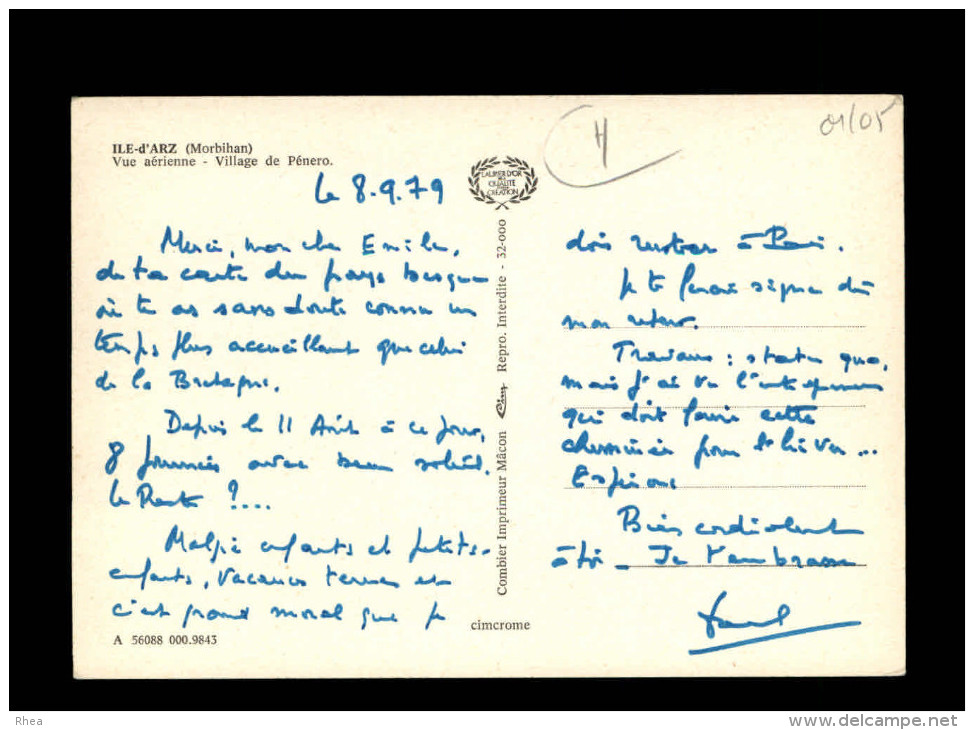 01/05
H
ILE-d'ARZ (Morbihan)
Vue aérienne - Village de Pénero.
LAURIER D'OR
DE
QUALITÉ
CRÉATION
le 8.9.79
Merci, mon cher Emile,
de ta carte du pays basque
où tu as sans doute connu un
temps plus accueillant que celui
de la Bretagne.
Depuis le 11 Août à ce jour,
8 journées avec beau soleil.
Le Reste ?....
Malgré enfants et petits-
enfants, vacances ternes et
c'est grand moral que je
dois rentrer à Paris.
Je te ferai signe dès
mon retour.
Travaux : statu quo,
mais j'ai vu l'entrepreneur
qui doit faire cette
cheminée pour l'hiver...
Espérons
Bien cordialement
à toi - Je t'embrasse
Combier Imprimeur Mâcon Cim Repro. Interdite - 32-000
cimcrome
A 56088 000.9843
Rhea
www.delcampe.net